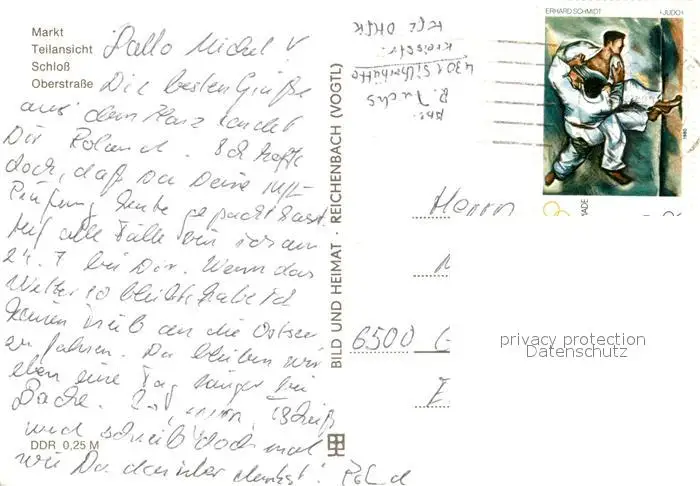 Markt
Teilansicht
Schloß
Oberstraße
Hallo Michel!
Die besten Grüße
aus dem Harz sendet
Dir Roland. Ich hoffe
doch, daß Du Deine
Prüfung heute gepackt hast.
Auf alle Fälle bin ich am
24. 7 bei Dir. Wenn das
Wetter so bleibt habe ich
keinen Trieb an die Ostsee
zu fahren. Da bleiben wir
eben eine Tag länger bei
und schreib doch mal
wie Du darüber denkst! Roland
DDR 0,25 M
BILD UND HEIMAT · REICHENBACH (VOGTL)
Abs.
R. Fuchs
4301 Silberhütte
Kreisstr.
ERHARD SCHMIDT
›JUDO‹
1980
Herrn
6500 G
privacy protection
Datenschutz